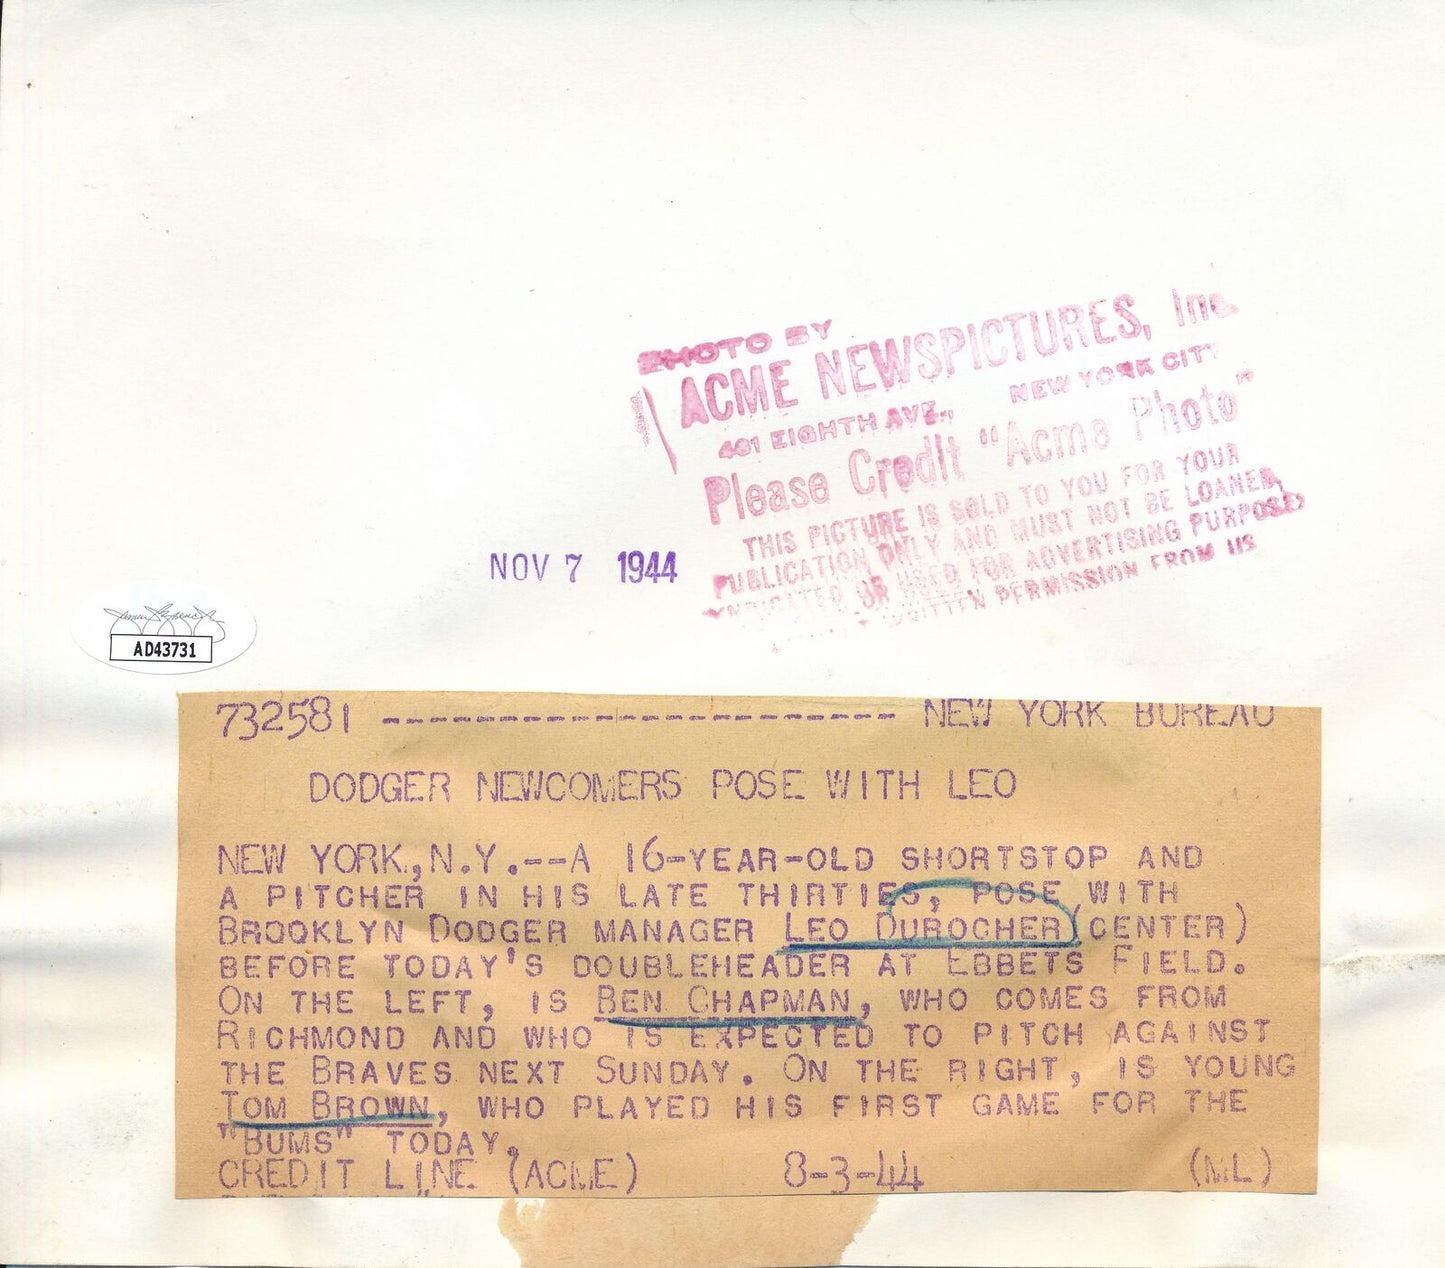 PHOTO BY
ACME NEWSPICTURES, Inc.
461 EIGHTH AVE., NEW YORK CITY
Please Credit "Acme Photo"
THIS PICTURE IS SOLD TO YOU FOR YOUR
PUBLICATION ONLY AND MUST NOT BE LOANED,
SYNDICATED OR USED FOR ADVERTISING PURPOSES
WRITTEN PERMISSION FROM US
NOV 7 1944
James Spence
AD43731
732581 ---------------------- NEW YORK BUREAU
DODGER NEWCOMERS POSE WITH LEO
NEW YORK,N.Y.--A 16-YEAR-OLD SHORTSTOP AND
A PITCHER IN HIS LATE THIRTIES, POSE WITH
BROOKLYN DODGER MANAGER LEO DUROCHER (CENTER)
BEFORE TODAY'S DOUBLEHEADER AT EBBETS FIELD.
ON THE LEFT, IS BEN CHAPMAN, WHO COMES FROM
RICHMOND AND WHO IS EXPECTED TO PITCH AGAINST
THE BRAVES NEXT SUNDAY. ON THE RIGHT, IS YOUNG
TOM BROWN, WHO PLAYED HIS FIRST GAME FOR THE
"BUMS" TODAY.
CREDIT LINE (ACME) 8-3-44 (ML)